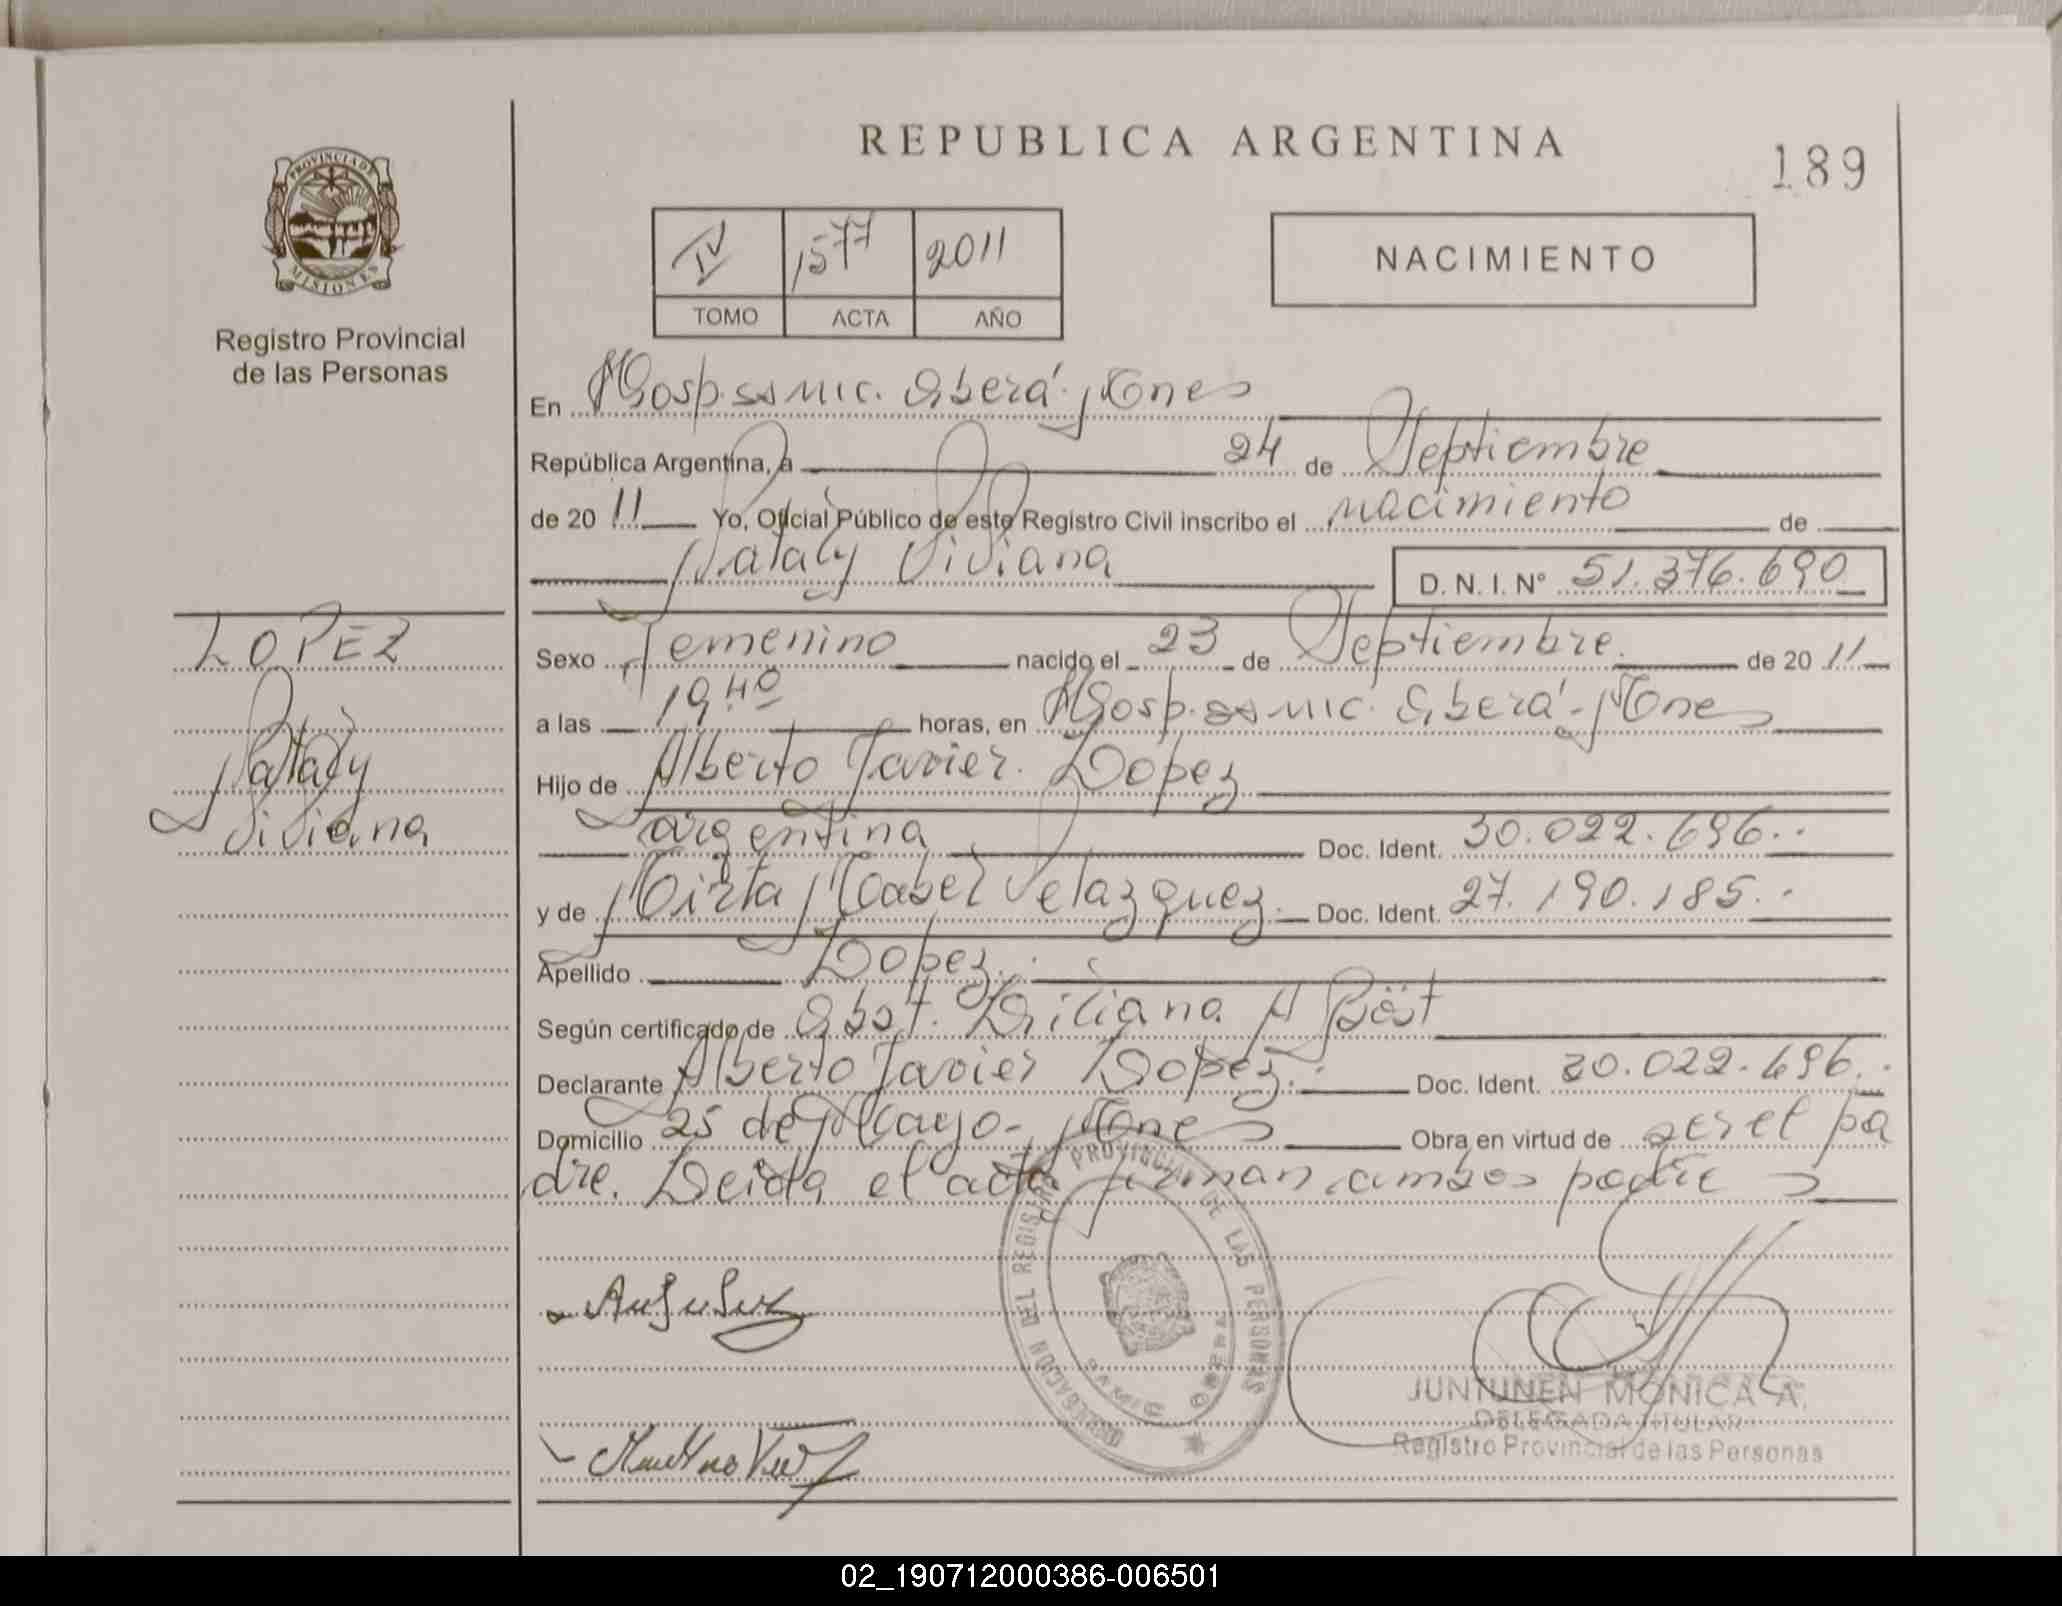 REPUBLICA ARGENTINA
189
PROVINCIA DE
MISIONES
Registro Provincial
de las Personas
IV 1577 2011
TOMO ACTA AÑO
NACIMIENTO
En Hosp. SSMIC. Oberá. Mnes
República Argentina, a 24 de Septiembre
de 20 11 Yo, Oficial Público de este Registro Civil inscribo el nacimiento de
Nataly Viviana D. N. I. Nº 51.376.690
LOPEZ
Nataly
Viviana
Sexo femenino nacido el 23 de Septiembre. de 20 11
a las 19,40 horas, en Hosp. SSMIC. Oberá - Mnes
Hijo de Alberto Javier. Lopez
argentina Doc. Ident. 30.022.696..
y de Mirta Mabel Velazquez. Doc. Ident. 27.190.185..
Apellido Lopez.
Según certificado de Obst. Liliana A Böst
Declarante Alberto Javier Lopez. Doc. Ident. 30.022.696..
Domicilio 25 de Mayo - Mnes Obra en virtud de ser el pa
dre. Leida el acta firman ambos padres
DELEGACION DEL REGISTRO PROVINCIAL DE LAS PERSONAS
JUNTUNEN MONICA A.
DELEGADA TITULAR
Registro Provincial de las Personas
02_190712000386-006501